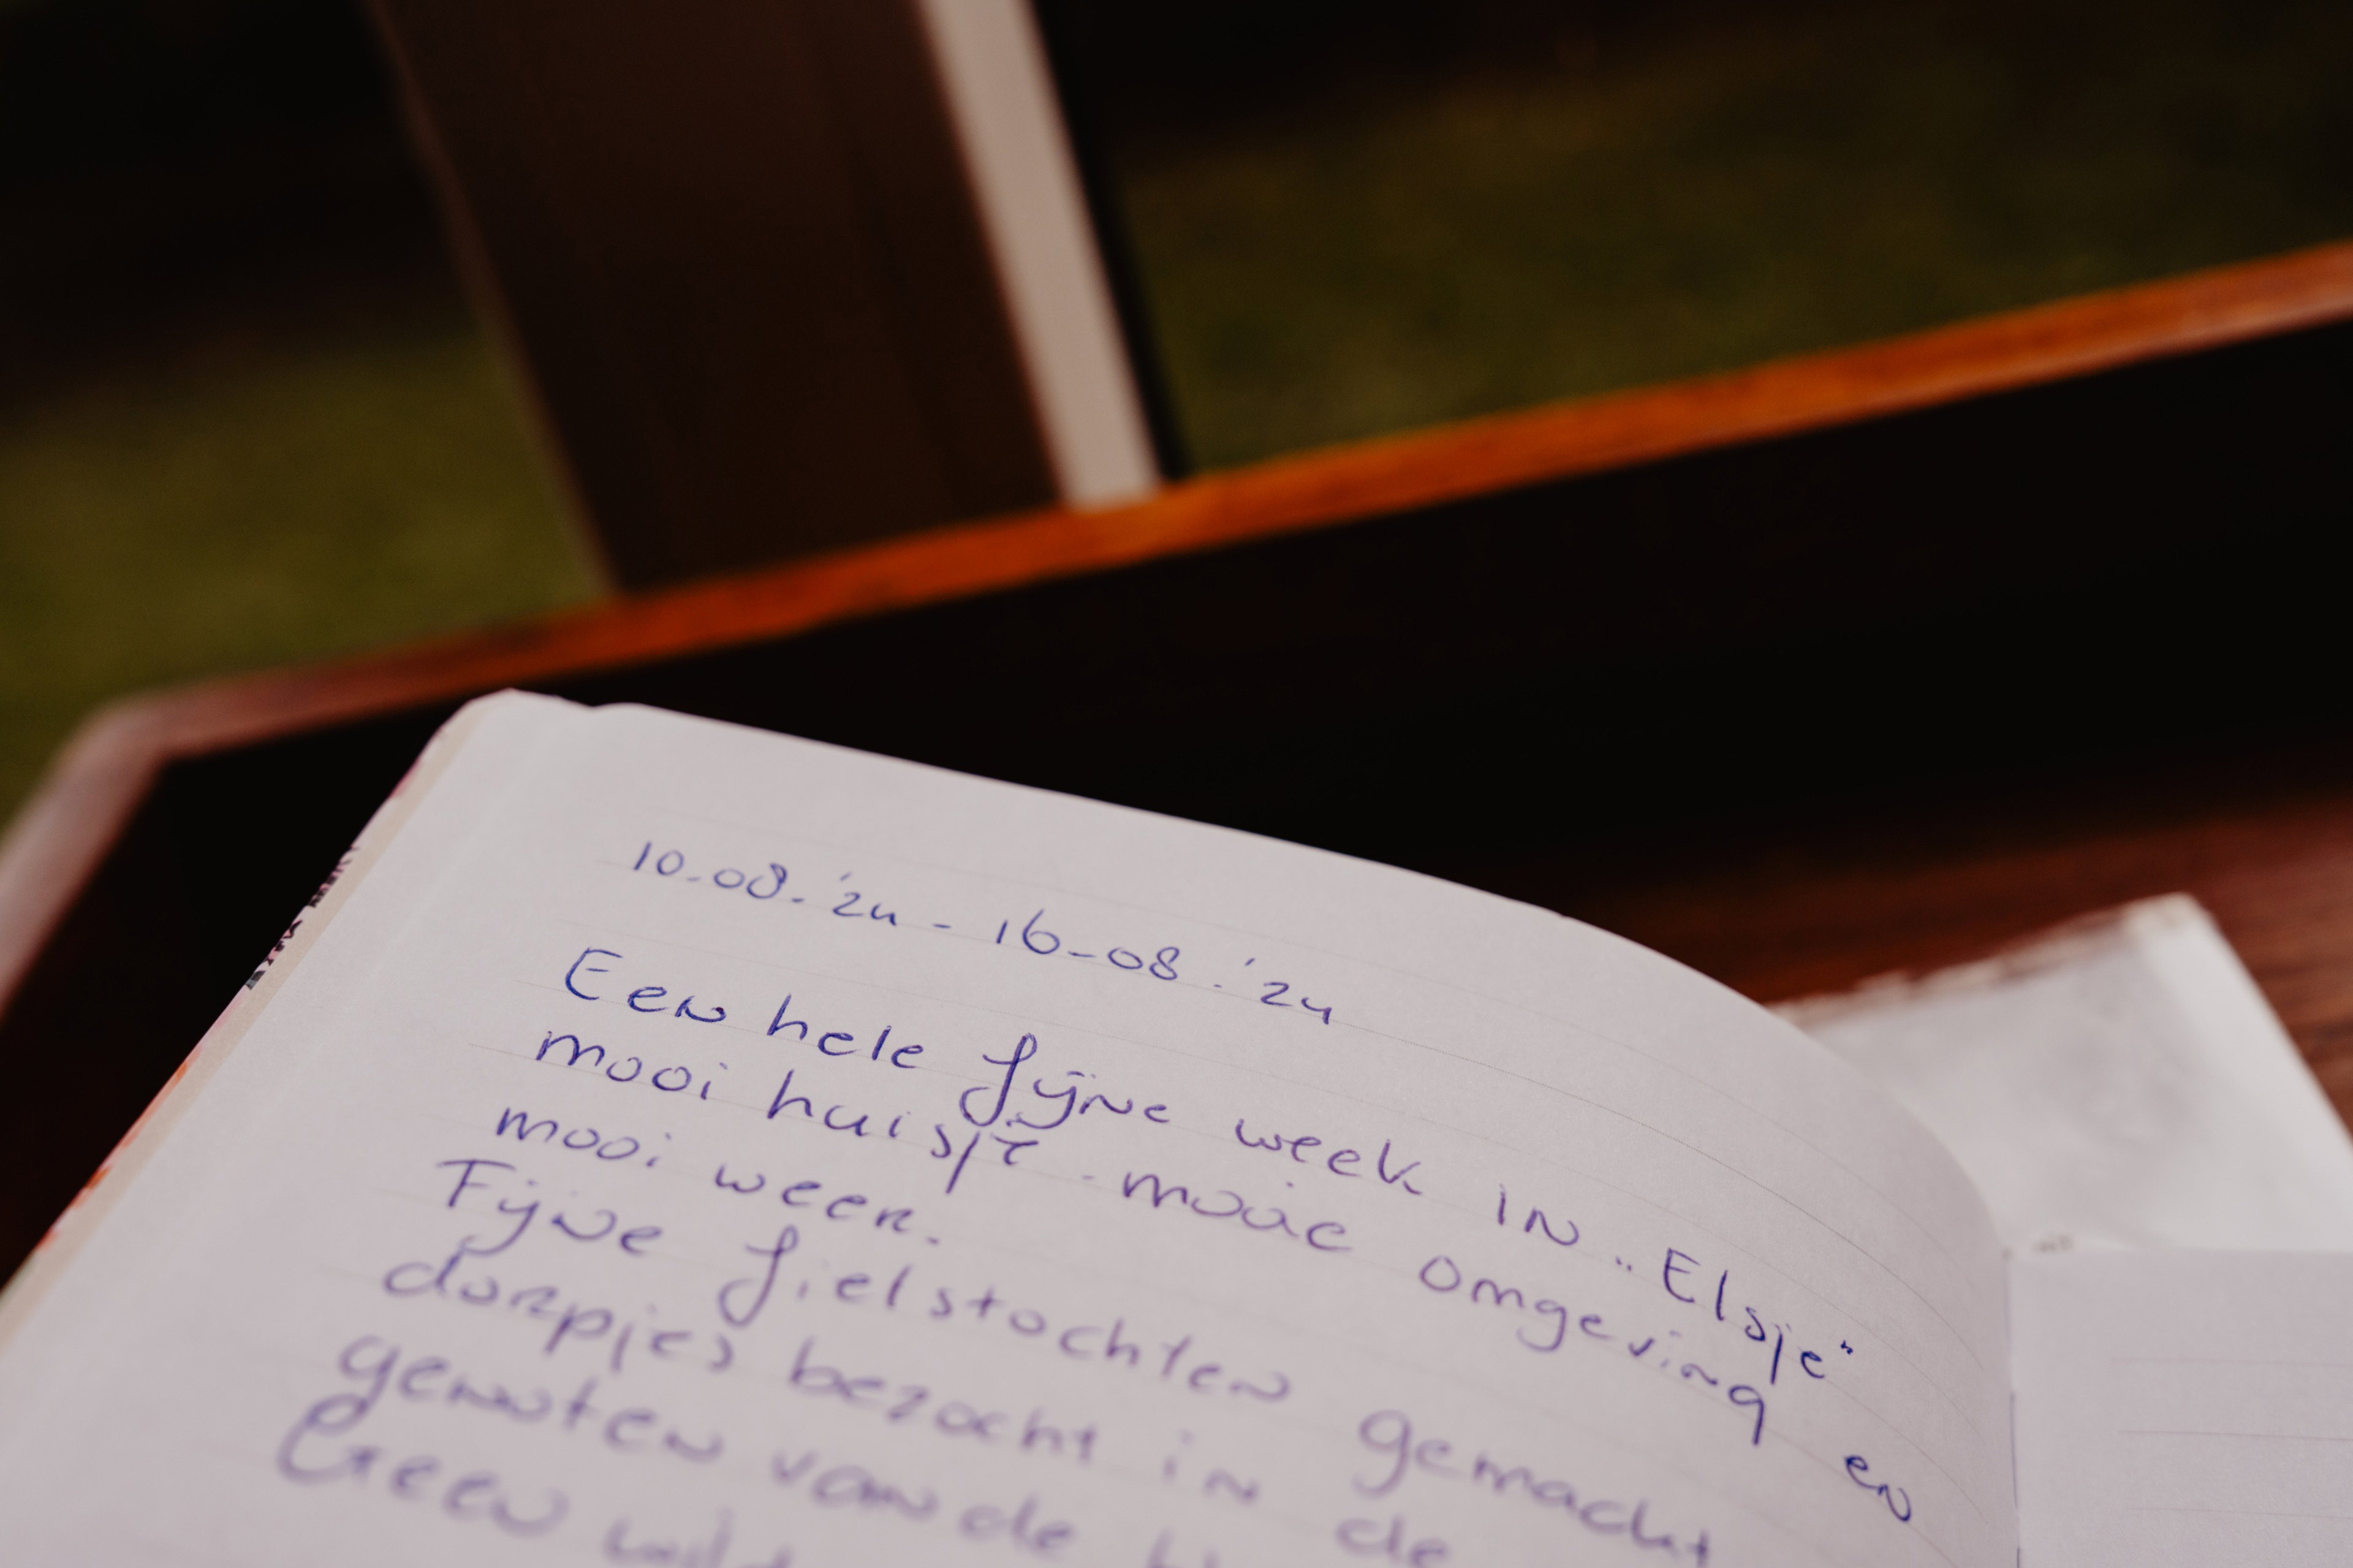 10-08-'24 - 16-08-'24
Een hele fijne week in "Elsje"
mooi huisje - mooie omgeving en
mooi weer.
Fijne fietstochten gemacht
dorpjes bezocht in de
genoten van de
Geen